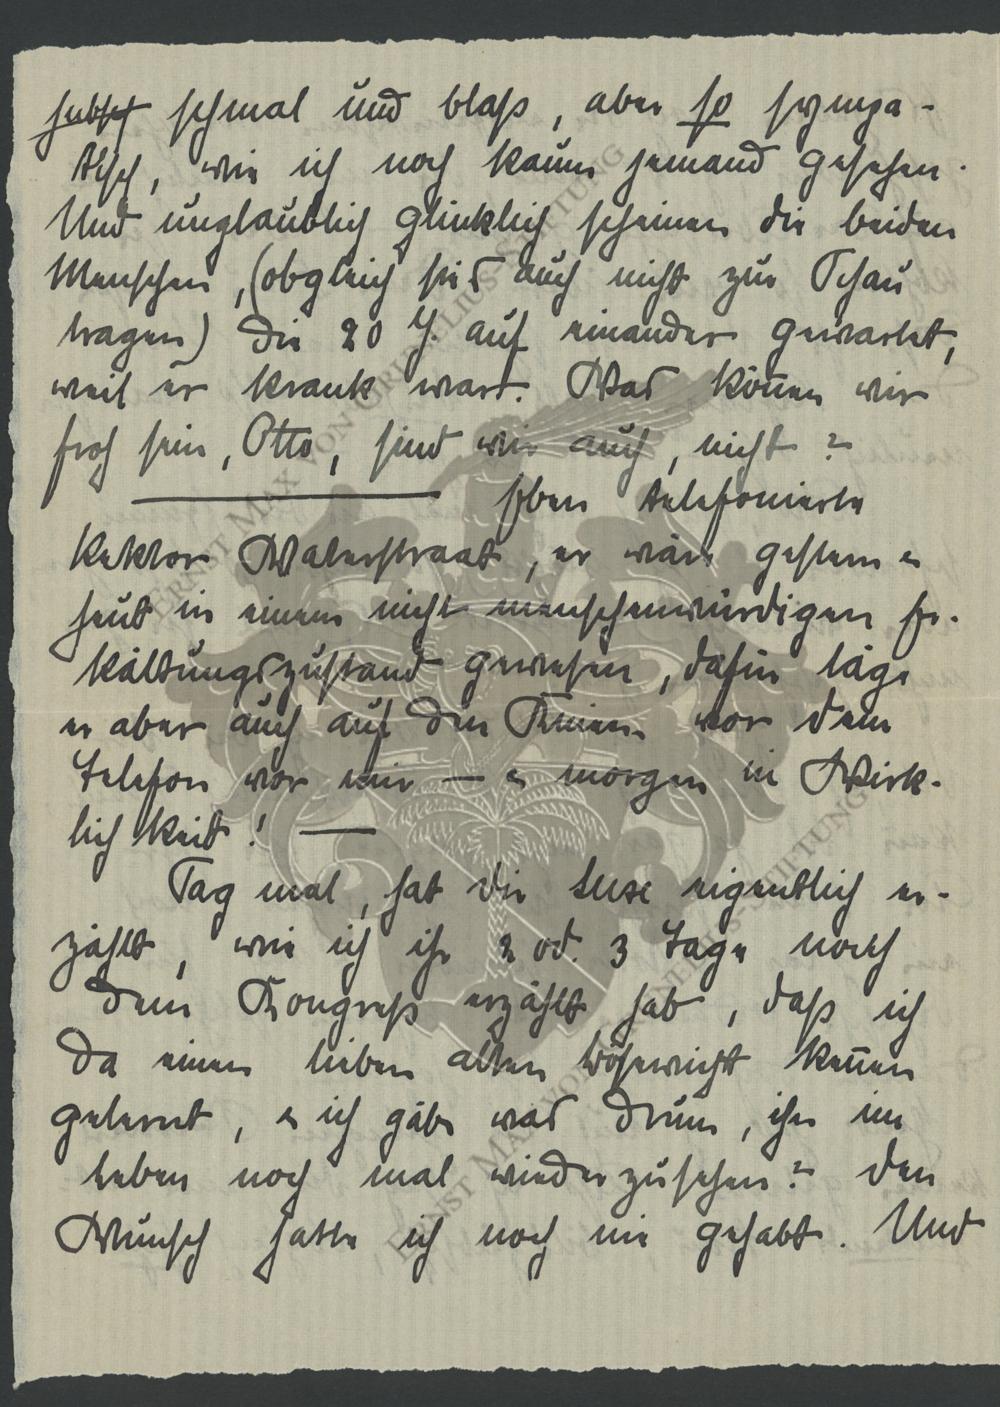 ~~hübsch~~ schmal und blaß, aber so sympa-
tisch, wie ich noch kaum jemand gesehen.
Und unglaublich glücklich scheinen die beiden
Menschen, (obgleich sie's auch nicht zur Schau
tragen) die 20 J. auf einander gewartet,
weil er krank war. Was können wir
froh sein, Otto, sind wir auch, nicht?
Eben telefonierte
Rektor Waterstraat, er wäre gestern u
heut in einem nicht menschenwürdigen Er-
kältungszustand gewesen, dafür läge
er aber auch auf den Knieen vor dem
Telefon vor mir — u morgen in Wirk-
lichkeit! —
Sag mal, hat dir Suse eigentlich er-
zählt, wie ich ihr 2 od. 3 Tage nach
dem Kongreß erzählt hab, daß ich
da einen lieben alten Bösewicht kennen
gelernt, u ich gäbe was drum, ihn im
Leben noch mal wiederzusehen? Den
Wunsch hatte ich noch nie gehabt. Und
ERNST MAX VON GRUNELIUS-STIFTUNG